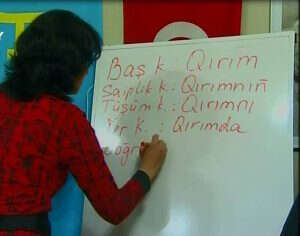 Baş k. Qırım
Saiplik k.: Qırımnıñ
Tüşüm k.: Qırımnı
Yer k. : Qırımda
oğr